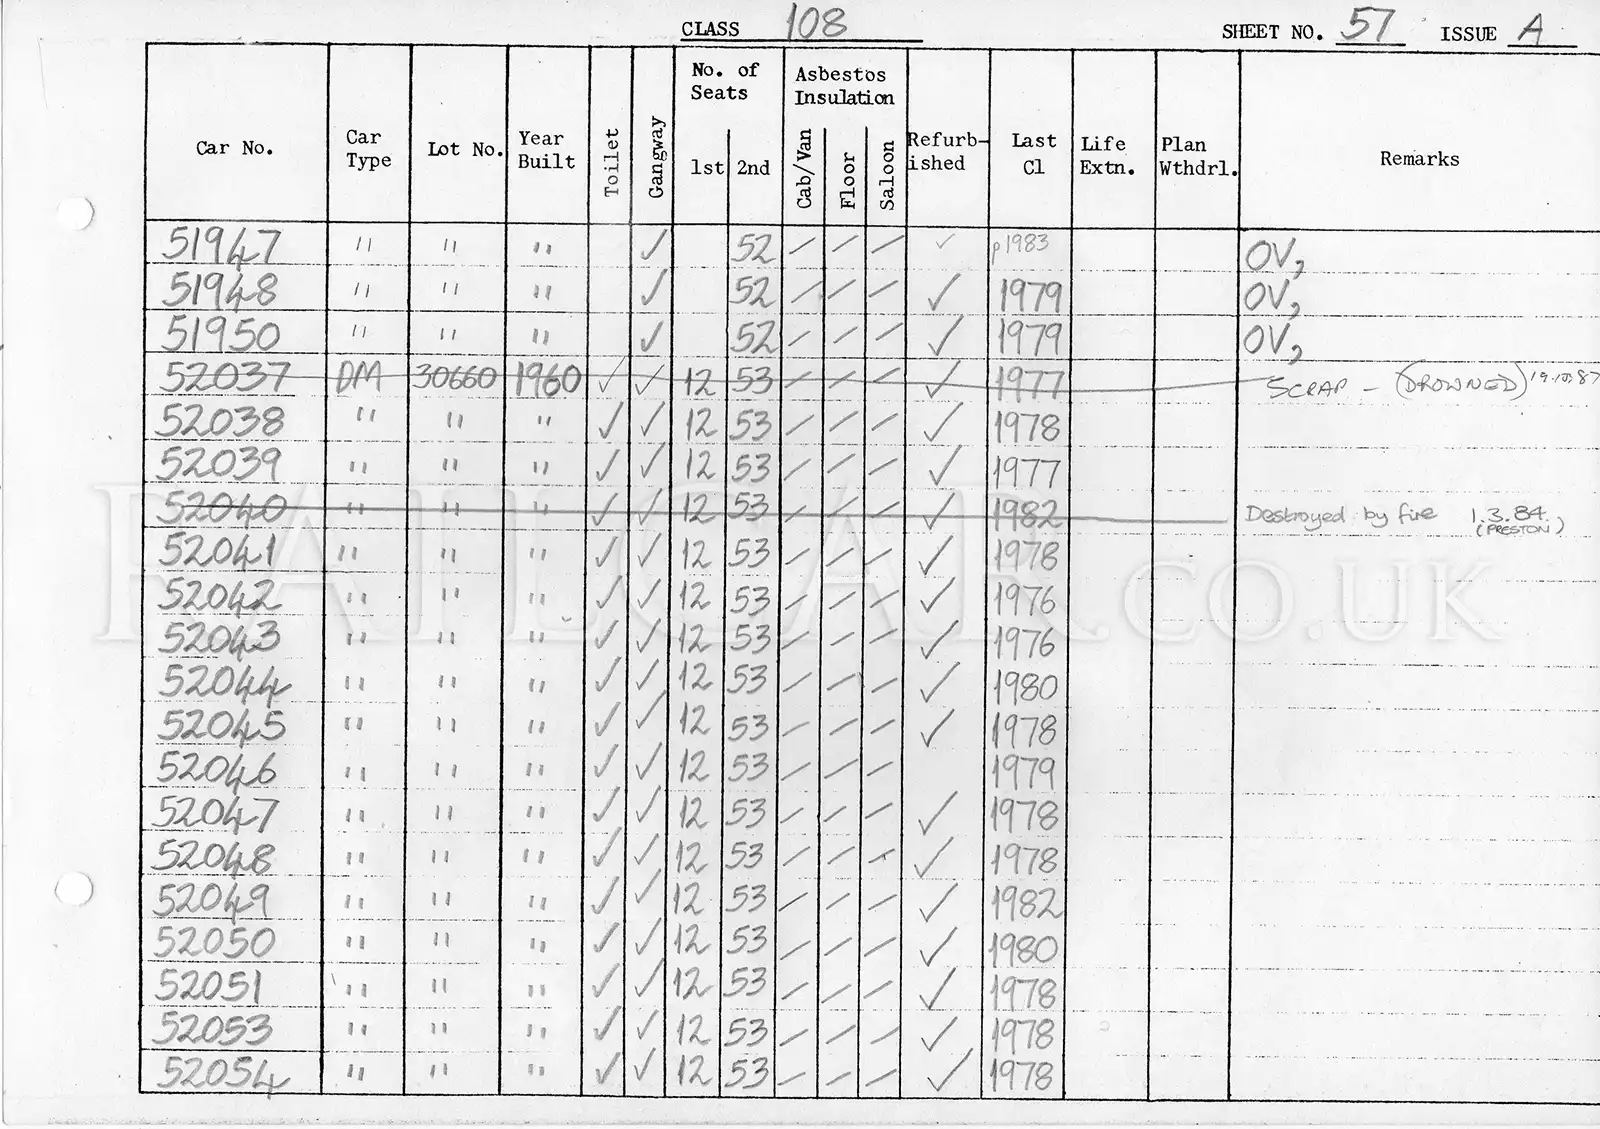 CLASS 108 SHEET NO. 57 ISSUE A
No. of Seats Asbestos Insulation
Car No. Car Type Lot No. Year Built Toilet Gangway 1st 2nd Cab/Van Floor Saloon Refurb-ished Last Cl Life Extn. Plan Wthdrl. Remarks
51947 " " " ✓ 52 / / / ✓ p1983 OV,
51948 " " " ✓ 52 / / / ✓ 1979 OV,
51950 " " " ✓ 52 / / / ✓ 1979 OV,
52037 DM 30660 1960 ✓ ✓ 12 53 / / / ✓ 1977 SCRAP - (DROWNED) 19.10.87
52038 " " " ✓ ✓ 12 53 / / / ✓ 1978
52039 " " " ✓ ✓ 12 53 / / / ✓ 1977
52040 " " " ✓ ✓ 12 53 / / / ✓ 1982 Destroyed by fire 1.3.84. (PRESTON)
52041 " " " ✓ ✓ 12 53 / / / ✓ 1978
52042 " " " ✓ ✓ 12 53 / / / ✓ 1976
52043 " " " ✓ ✓ 12 53 / / / ✓ 1976
52044 " " " ✓ ✓ 12 53 / / / ✓ 1980
52045 " " " ✓ ✓ 12 53 / / / ✓ 1978
52046 " " " ✓ ✓ 12 53 / / / 1979
52047 " " " ✓ ✓ 12 53 / / / ✓ 1978
52048 " " " ✓ ✓ 12 53 / / / ✓ 1978
52049 " " " ✓ ✓ 12 53 / / / ✓ 1982
52050 " " " ✓ ✓ 12 53 / / / ✓ 1980
52051 " " " ✓ ✓ 12 53 / / / ✓ 1978
52053 " " " ✓ ✓ 12 53 / / / ✓ 1978
52054 " " " ✓ ✓ 12 53 / / / ✓ 1978
RAILCAR.CO.UK